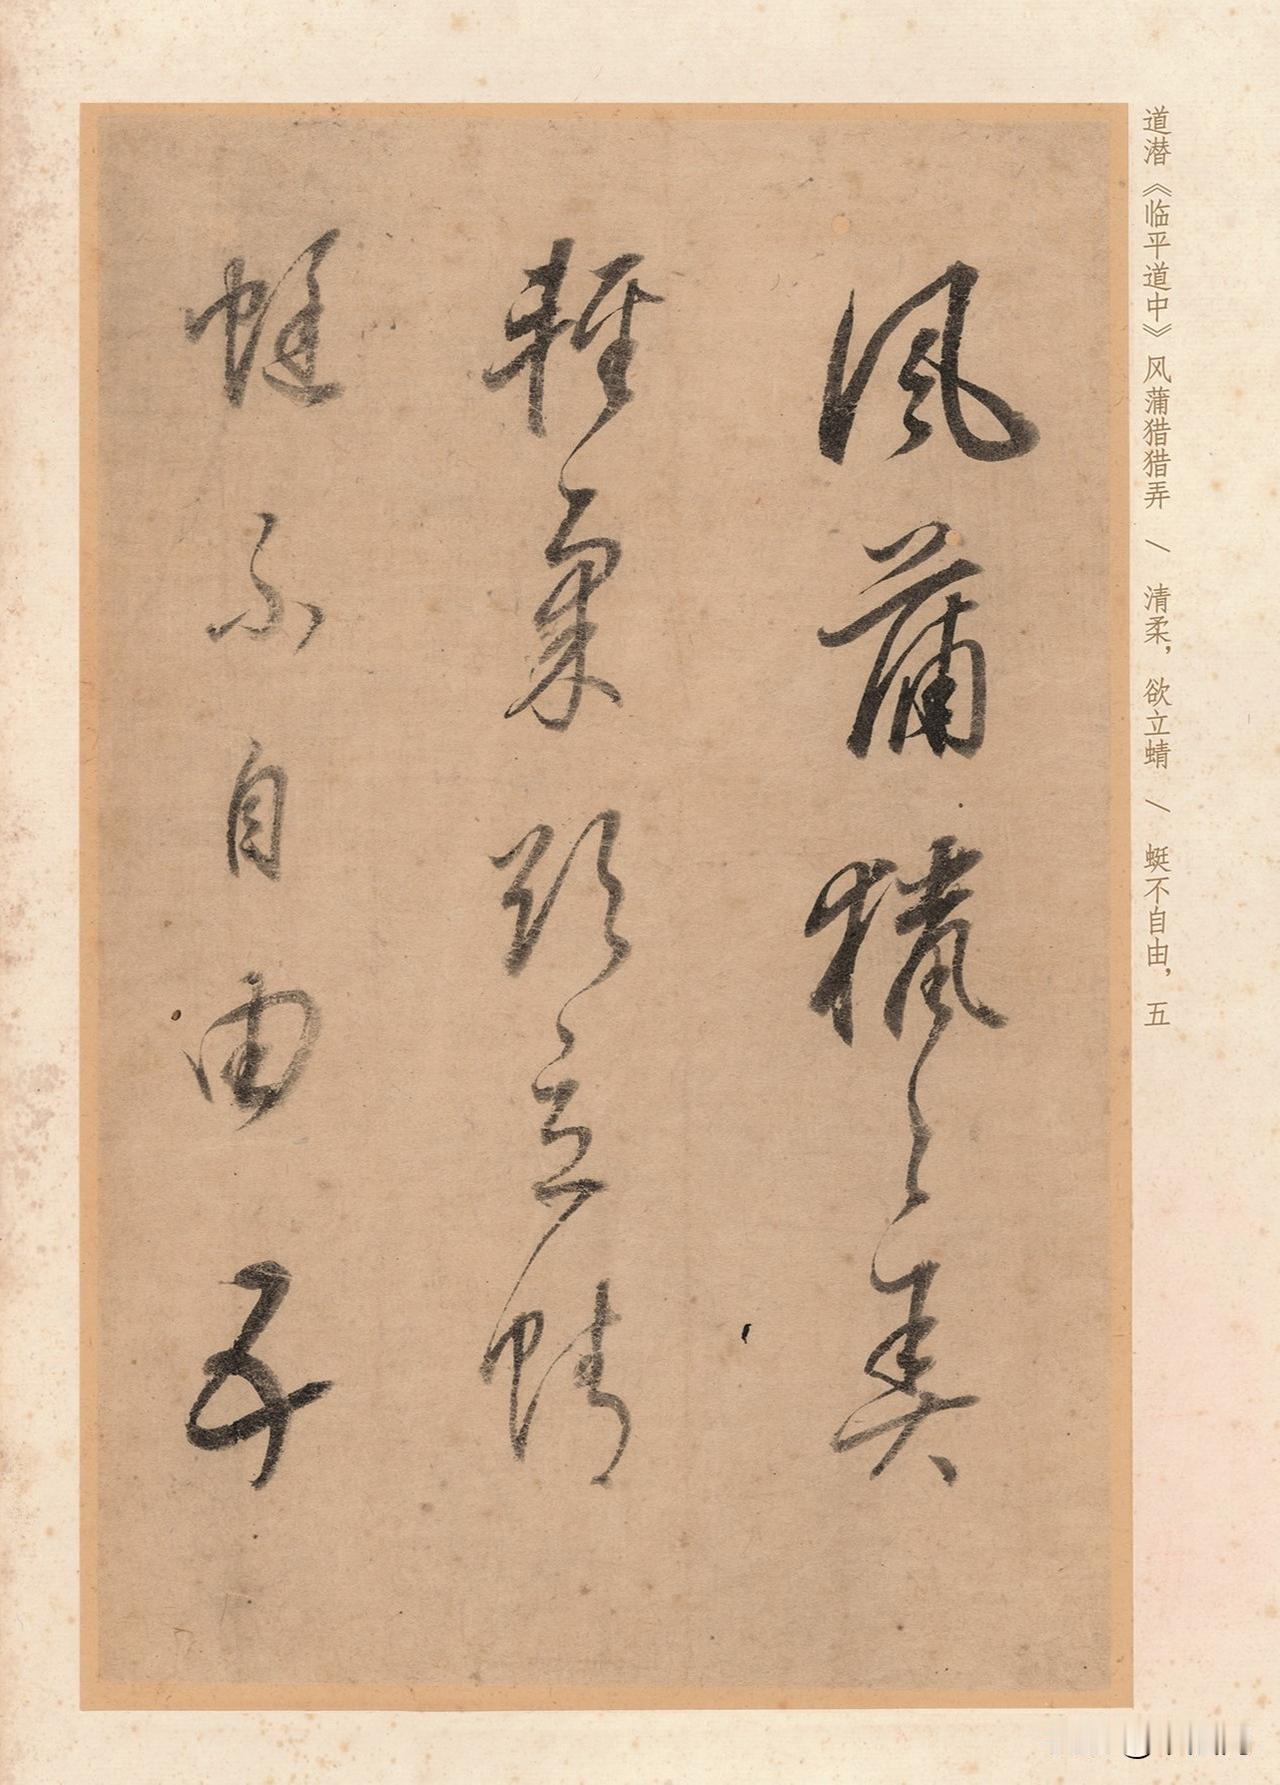 道潜《临平道中》风蒲猎猎弄 / 清柔，欲立蜻 / 蜓不自由，五
風蒲獵〻弄
輕柔欲立蜻
蜓不自由五